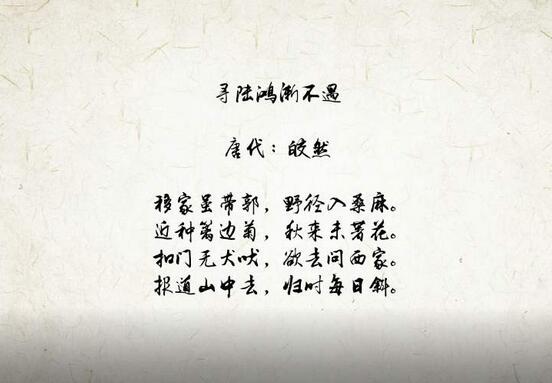 寻陆鸿渐不遇
唐代：皎然
移家虽带郭，野径入桑麻。
近种篱边菊，秋来未著花。
扣门无犬吠，欲去问西家。
报道山中去，归时每日斜。